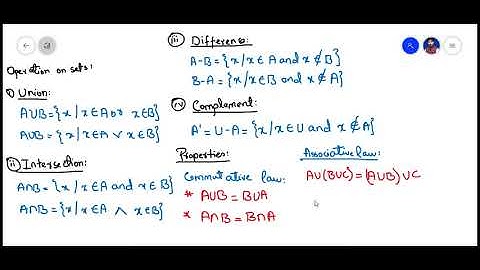 Operation on sets:
i) Union:
A∪B={x/x∈A or x∈B}
A∪B={x/x∈A ∨ x∈B}
ii) Intersection:
A∩B={x/x∈A and x∈B}
A∩B={x/x∈A ∧ x∈B}
iii) Difference:
A-B={x/x∈A and x∉B}
B-A={x/x∈B and x∉A}
iv) Complement:
A'=U-A={x/x∈U and x∉A}
Properties:
Commutative law:
* A∪B=B∪A
* A∩B=B∩A
Associative law:
A∪(B∪C)=(A∪B)∪C